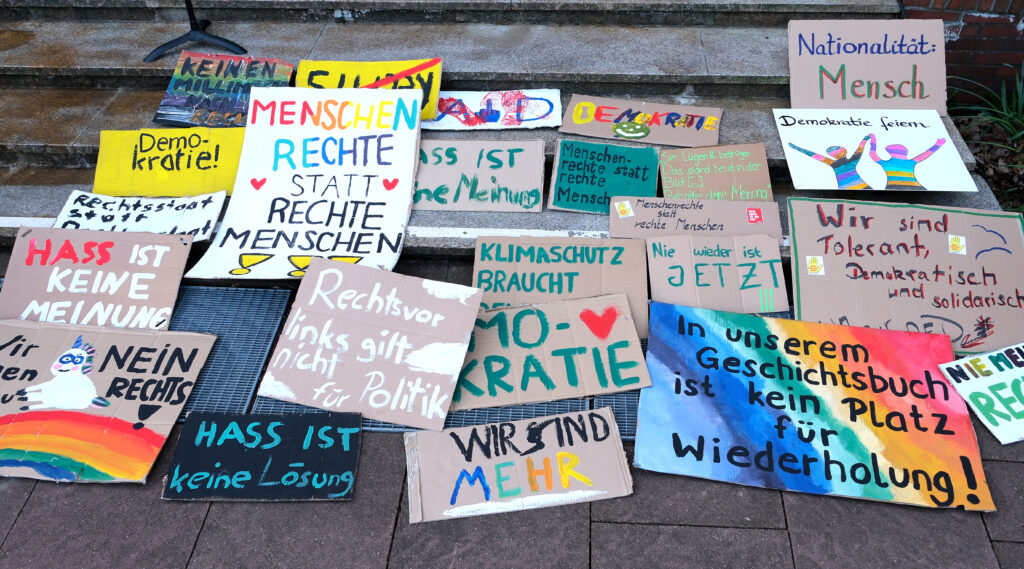 KEINEN
MILLIMETER
NACH
Nationalität:
Mensch
DEMOKRATIE
Demo-
kratie!
MENSCHEN
RECHTE
STATT
RECHTE
MENSCHEN
HASS IST
keine Meinung
Menschen-
rechte statt
rechte
Mensch
Sie lügen & betrügen
Das stand heut in der
Bild
Demokratie feiern
Rechtsstaat
statt
Menschenrechte
statt
rechte Menschen
HASS IST
KEINE
MEINUNG
KLIMASCHUTZ
BRAUCHT
Nie wieder ist
JETZT
!!!
Wir sind
Tolerant,
Demokratisch
und solidarisch
Rechtsvor
links gilt
nicht
für Politik
MO-
KRATIE
In unserem
Geschichtsbuch
ist kein Platz
für
Wiederholung!
NIE
RE
NEIN
RECHTS
!
HASS IST
keine Lösung
WIR SIND
MEHR